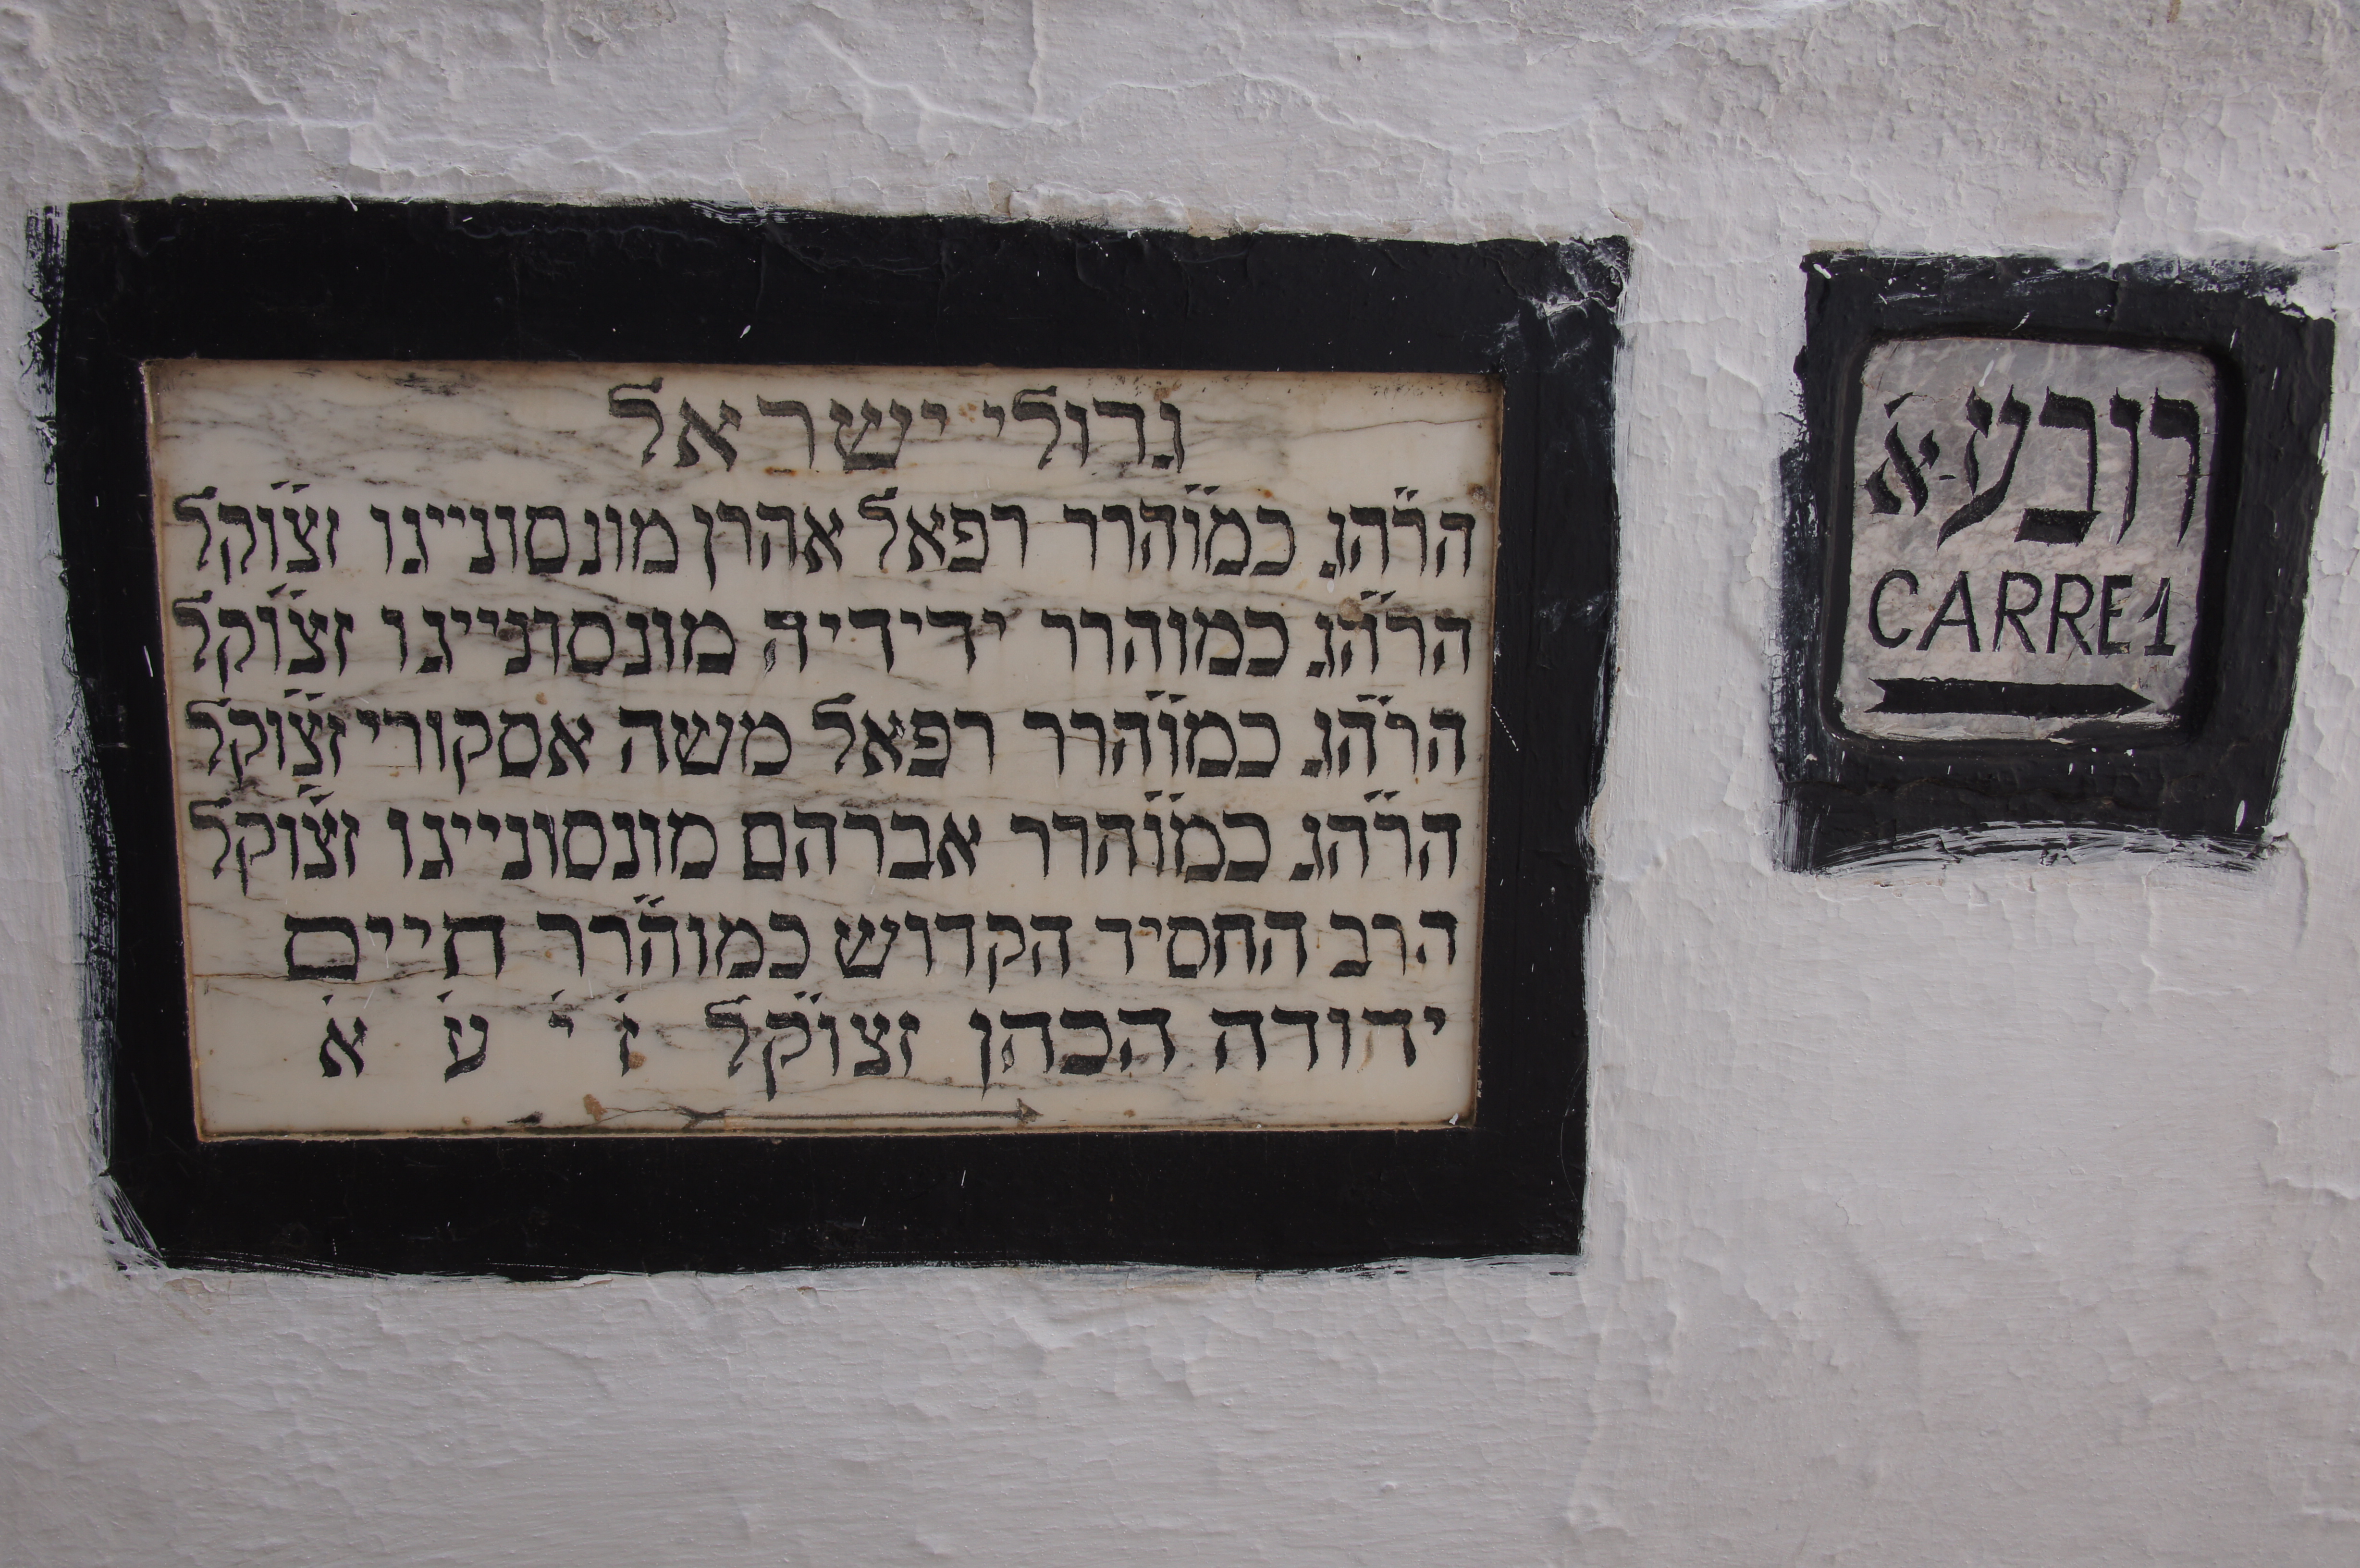 גדולי ישראל
הר״הג כמו״הרר רפאל אהרן מונסונייגו זצ״וקל
הר״הג כמוהרר ידידיה מונסונייגו זצ״וקל
הר״הג כמו״הרר רפאל משה אסקורי זצ״וקל
הר״הג כמו״הרר אברהם מונסונייגו זצ״וקל
הרב החסיד הקדוש כמוה״רר חיים
יהודה הכהן זצו״קל ז׳ י׳ ע׳ א׳
רובע-א׳
CARRE 1